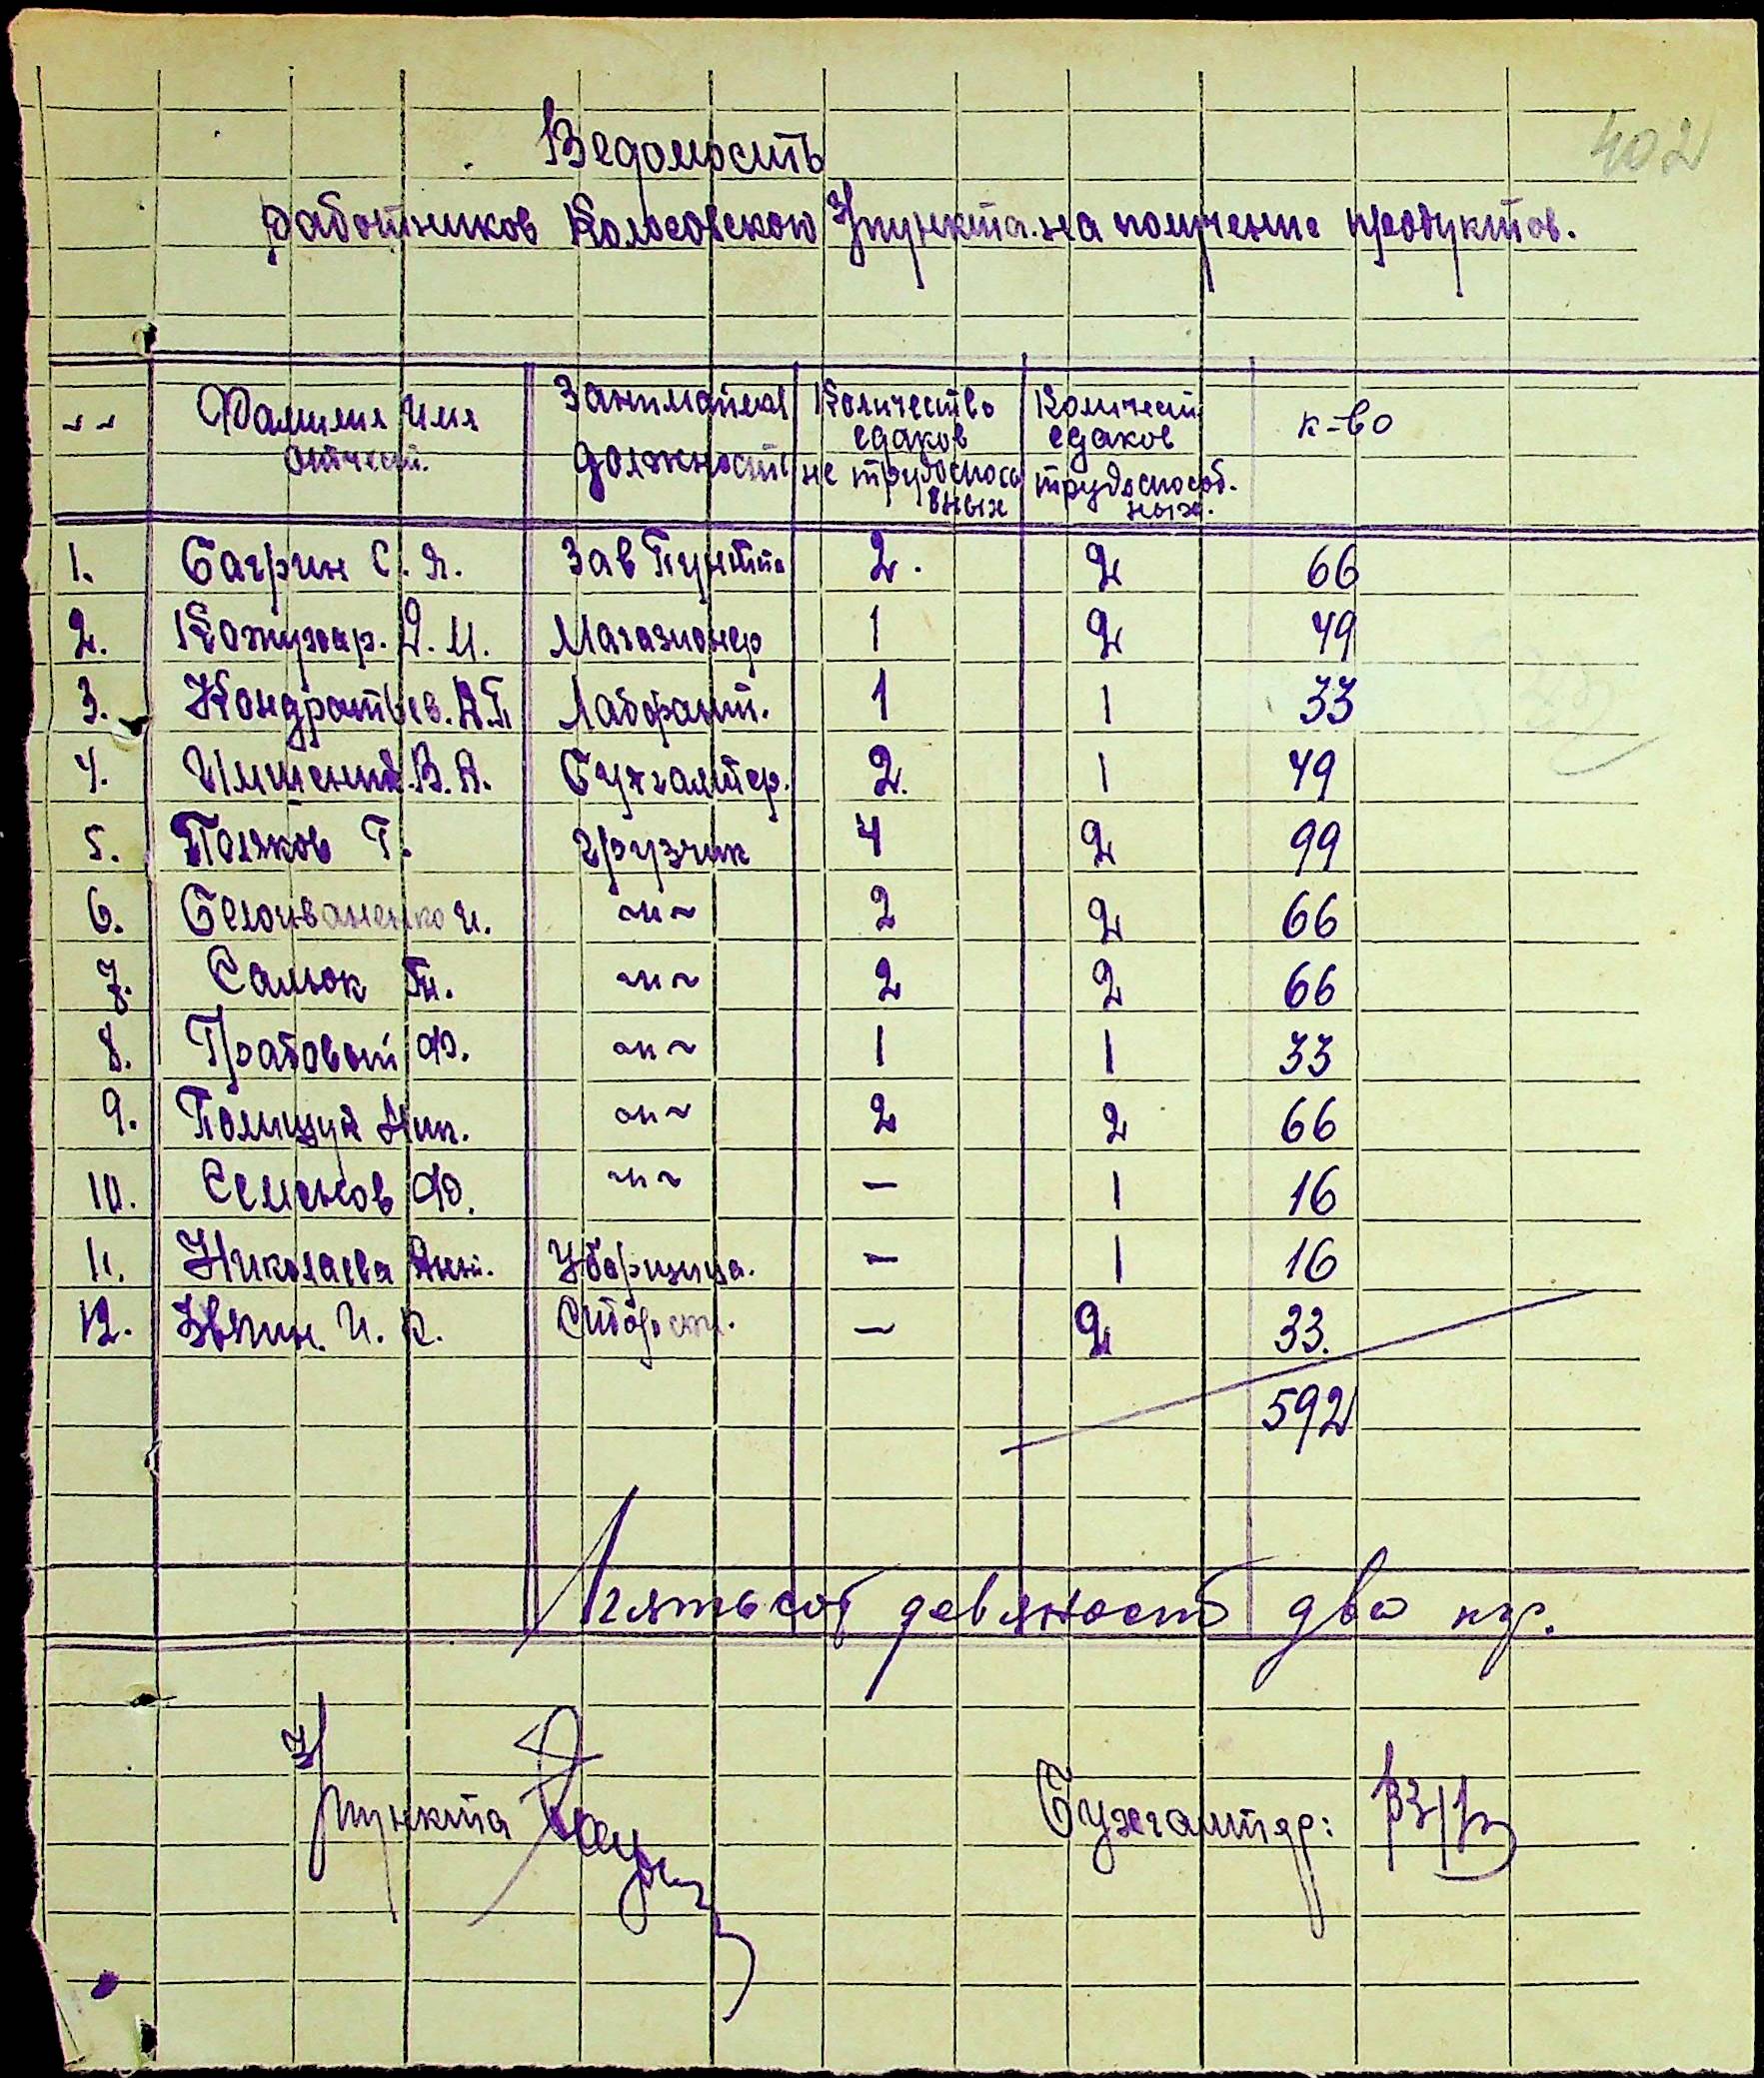 402
Ведомость
работников Колосовского З/пункта на получение продуктов.
Фамилия Имя отчест. Занимаемая должность Количество едаков не трудоспособных Количест едаков трудоспособных. к-во
1. Багрин С. Я. Зав Пункта 2. 2 66
2. Кожухар. Д. И. Магазионер 1 2 49
3. Кондратьев. А.П Лаборант. 1 1 33
4. В. А. Бухгалтер. 2. 1 49
5. Поляков Т. грузчик 4 2 99
6. Белоиваненко И. -"- 2 2 66
7. Салюк -"- 2 2 66
8. Ф. -"- 1 1 33
9. Полищук Ник. -"- 2 2 66
10. Семенов Ф. -"- — 1 16
11. Николаева Ант. Уборщица. — 1 16
12. И. К. — 2 33.
592
Пятьсот девяносто два кгр.
З/пункта
Бухгалтер: